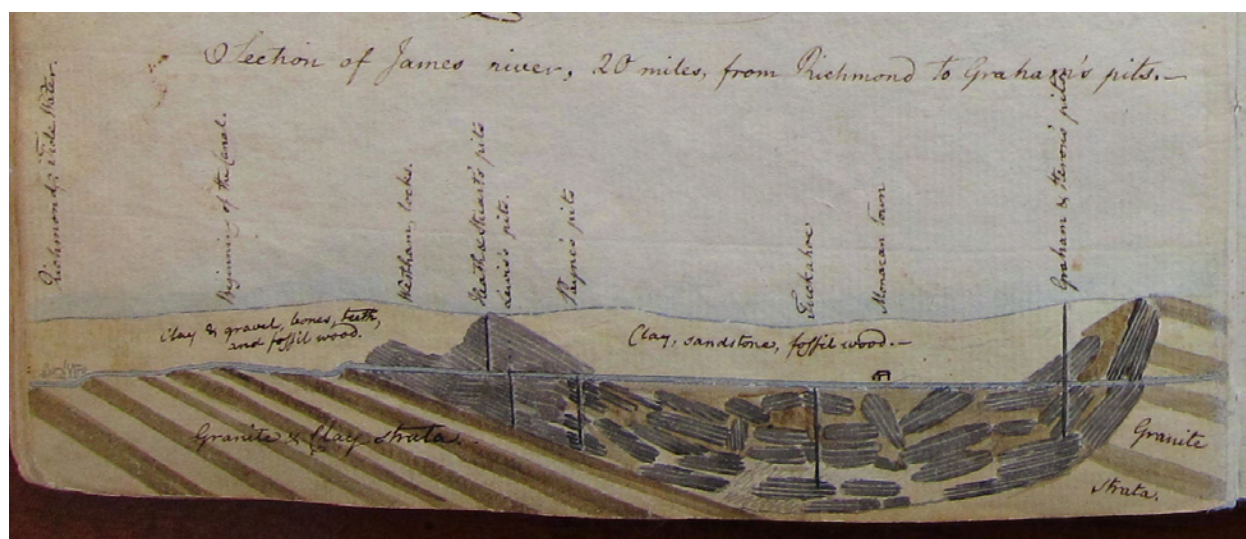 Section of James river, 20 miles, from Richmond to Graham's pits.—
Richmond, & Tide Water.
Beginning of the Canal.
Westham, locks.
Heath & Stewart's pits
Lewis's pits.
Payne's pits
Tuckahoe
Monacan Town
Graham & Heron's pits
Clay & gravel, bones, teeth,
and fossil wood.
Clay, sandstone, fossil wood.—
Granite & Clay strata.
Granite
strata.